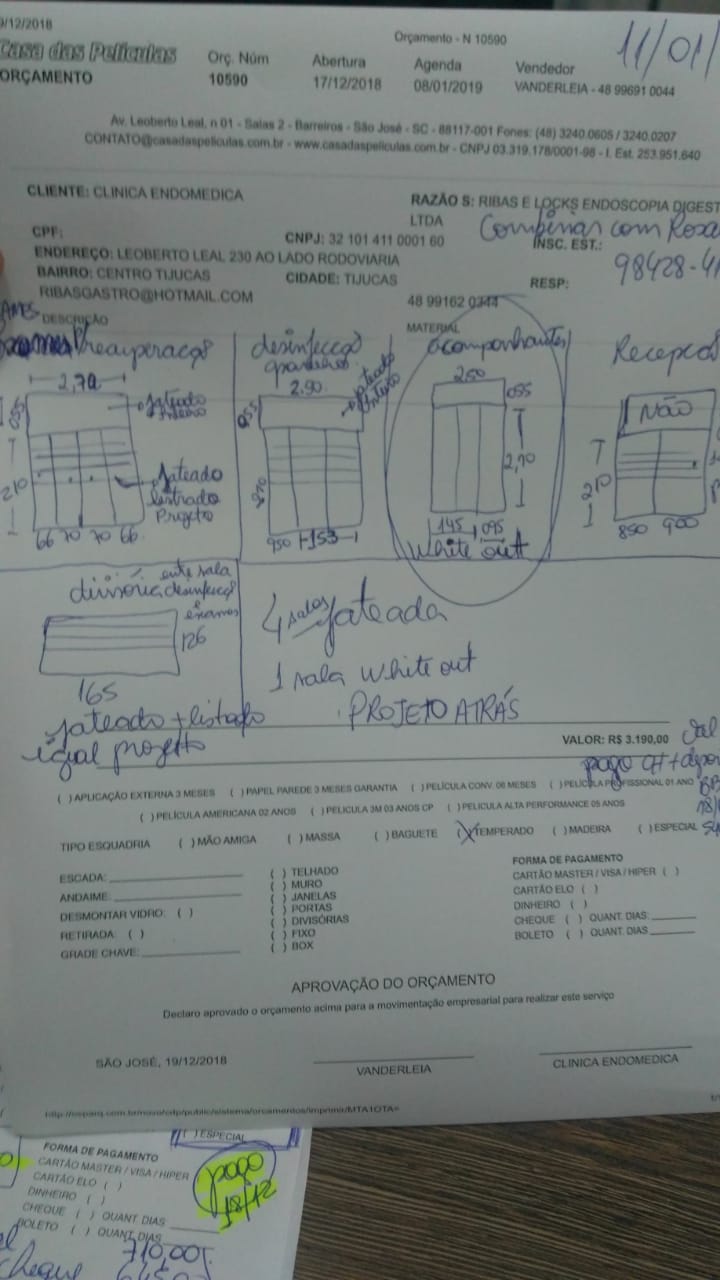 9/12/2018
Orçamento - N 10590
11/01/
Casa das Películas
ORÇAMENTO
Orç. Núm
10590
Abertura
17/12/2018
Agenda
08/01/2019
Vendedor
VANDERLEIA - 48 99691 0044
Av. Leoberto Leal, n 01 - Salas 2 - Barreiros - São José - SC - 88117-001 Fones: (48) 3240.0605 / 3240.0207
CONTATO@casadaspeliculas.com.br - www.casadaspeliculas.com.br - CNPJ 03.319.178/0001-98 - I. Est. 253.951.640
CLIENTE: CLINICA ENDOMEDICA
RAZÃO S: RIBAS E LOCKS ENDOSCOPIA DIGEST
LTDA
Combinar com Rosa
CPF:
CNPJ: 32 101 411 0001 60
INSC. EST.:
98428-4
ENDEREÇO: LEOBERTO LEAL 230 AO LADO RODOVIARIA
BAIRRO: CENTRO TIJUCAS
CIDADE: TIJUCAS
RESP:
RIBASGASTRO@HOTMAIL.COM
48 99162 0344
DESCRIÇÃO
MATERIAL
recuperação
2,70
jateado
inteiro
210
jateado
listrado
Projeto
66 70 70 66
desinfecção
2,90
jateado
inteiro
055
950 153
acompanhantes
250
055
2,10
145 095
White out
Recepção
NÃO
210
850 900
divisória entre sala
desinfecção
e exames
126
165
jateado + listrado
igual projeto
4 salas jateada
1 sala White out
PROJETO ATRÁS
VALOR: R$ 3.190,00
pago
( ) APLICAÇÃO EXTERNA 3 MESES ( ) PAPEL PAREDE 3 MESES GARANTIA ( ) PELÍCULA CONV. 06 MESES ( ) PELÍCULA PROFISSIONAL 01 ANO
( ) PELÍCULA AMERICANA 02 ANOS ( ) PELICULA 3M 03 ANOS CP ( ) PELICULA ALTA PERFORMANCE 05 ANOS
TIPO ESQUADRIA ( ) MÃO AMIGA ( ) MASSA ( ) BAGUETE (X) TEMPERADO ( ) MADEIRA ( ) ESPECIAL
ESCADA:
ANDAIME:
DESMONTAR VIDRO: ( )
RETIRADA: ( )
GRADE CHAVE:
( ) TELHADO
( ) MURO
( ) JANELAS
( ) PORTAS
( ) DIVISÓRIAS
( ) FIXO
( ) BOX
FORMA DE PAGAMENTO
CARTÃO MASTER / VISA / HIPER ( )
CARTÃO ELO ( )
DINHEIRO ( )
CHEQUE ( ) QUANT. DIAS:
BOLETO ( ) QUANT. DIAS
APROVAÇÃO DO ORÇAMENTO
Declaro aprovado o orçamento acima para a movimentação empresarial para realizar este serviço
SÃO JOSÉ, 19/12/2018
VANDERLEIA
CLINICA ENDOMEDICA
( ) ESPECIAL
FORMA DE PAGAMENTO
CARTÃO MASTER / VISA / HIPER
CARTÃO ELO ( )
DINHEIRO ( )
CHEQUE ( ) QUANT. DIAS
BOLETO ( ) QUANT. DIAS
pago
18/12
710,00
cheque